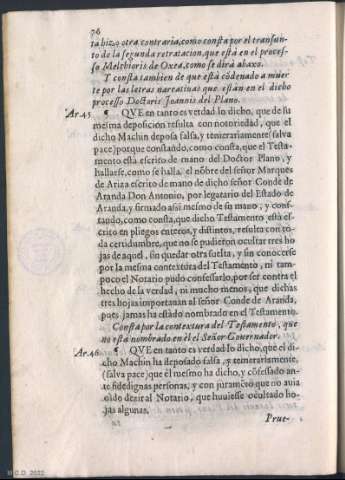 96
ta hizo otra contraria, como consta por el transun-
to de la segunda retratacion, que està en el proces-
so Melchioris de Oxea, como se dirà abaxo.
Y consta tambien de que està cõdenado a muer
te por las letras narratiuas que estàn en el dicho
processo Doctoris Joannis del Plano.
Ar.45 ¶ QVE en tanto es verdad lo dicho, que de su
mesma deposicion resulta con notoriedad, que el
dicho Machin deposa falsa, y temerariamente (salva
pace) porque constando, como consta, que el Testa-
mento està escrito de mano del Doctor Plano, y
hallarse, como se halla, el nõbre del señor Marques
de Ariza escrito de mano de dicho señor Conde de
Aranda Don Antonio, por legatario del Estado de
Aranda, y firmado assi mesmo de su mano, y cons-
tando, como consta, que dicho Testamento està es-
crito en pliegos enteros, y distintos, resulta con to-
da certidumbre, que no se pudieron ocultar tres ho
jas de aquel, sin quedar otra suelta, y sin conocerse
por la mesma contextura del Testamento, ni tam-
poco el Notario pudo confessarlo, por ser contra el
hecho de la verdad, ni mucho menos, que dichas
tres hojas importauan al señor Conde de Aranda,
pues jamas ha estado nombrado en el Testamento.
Consta por la contextura del Testamento, que
no està nombrado en èl el Señor Gouernador.
Ar.46. ¶ QVE en tanto es verdad lo dicho, que el di-
cho Machin ha deposado falsa, y temerariamente,
(salva pace) que èl mesmo ha dicho, y cõfessado an-
te fidedignas personas, y con juramẽto que no auia
oìdo dezir al Notario, que huuiesse ocultado ho-
jas algunas.
Prue-
M.C.D. 2022